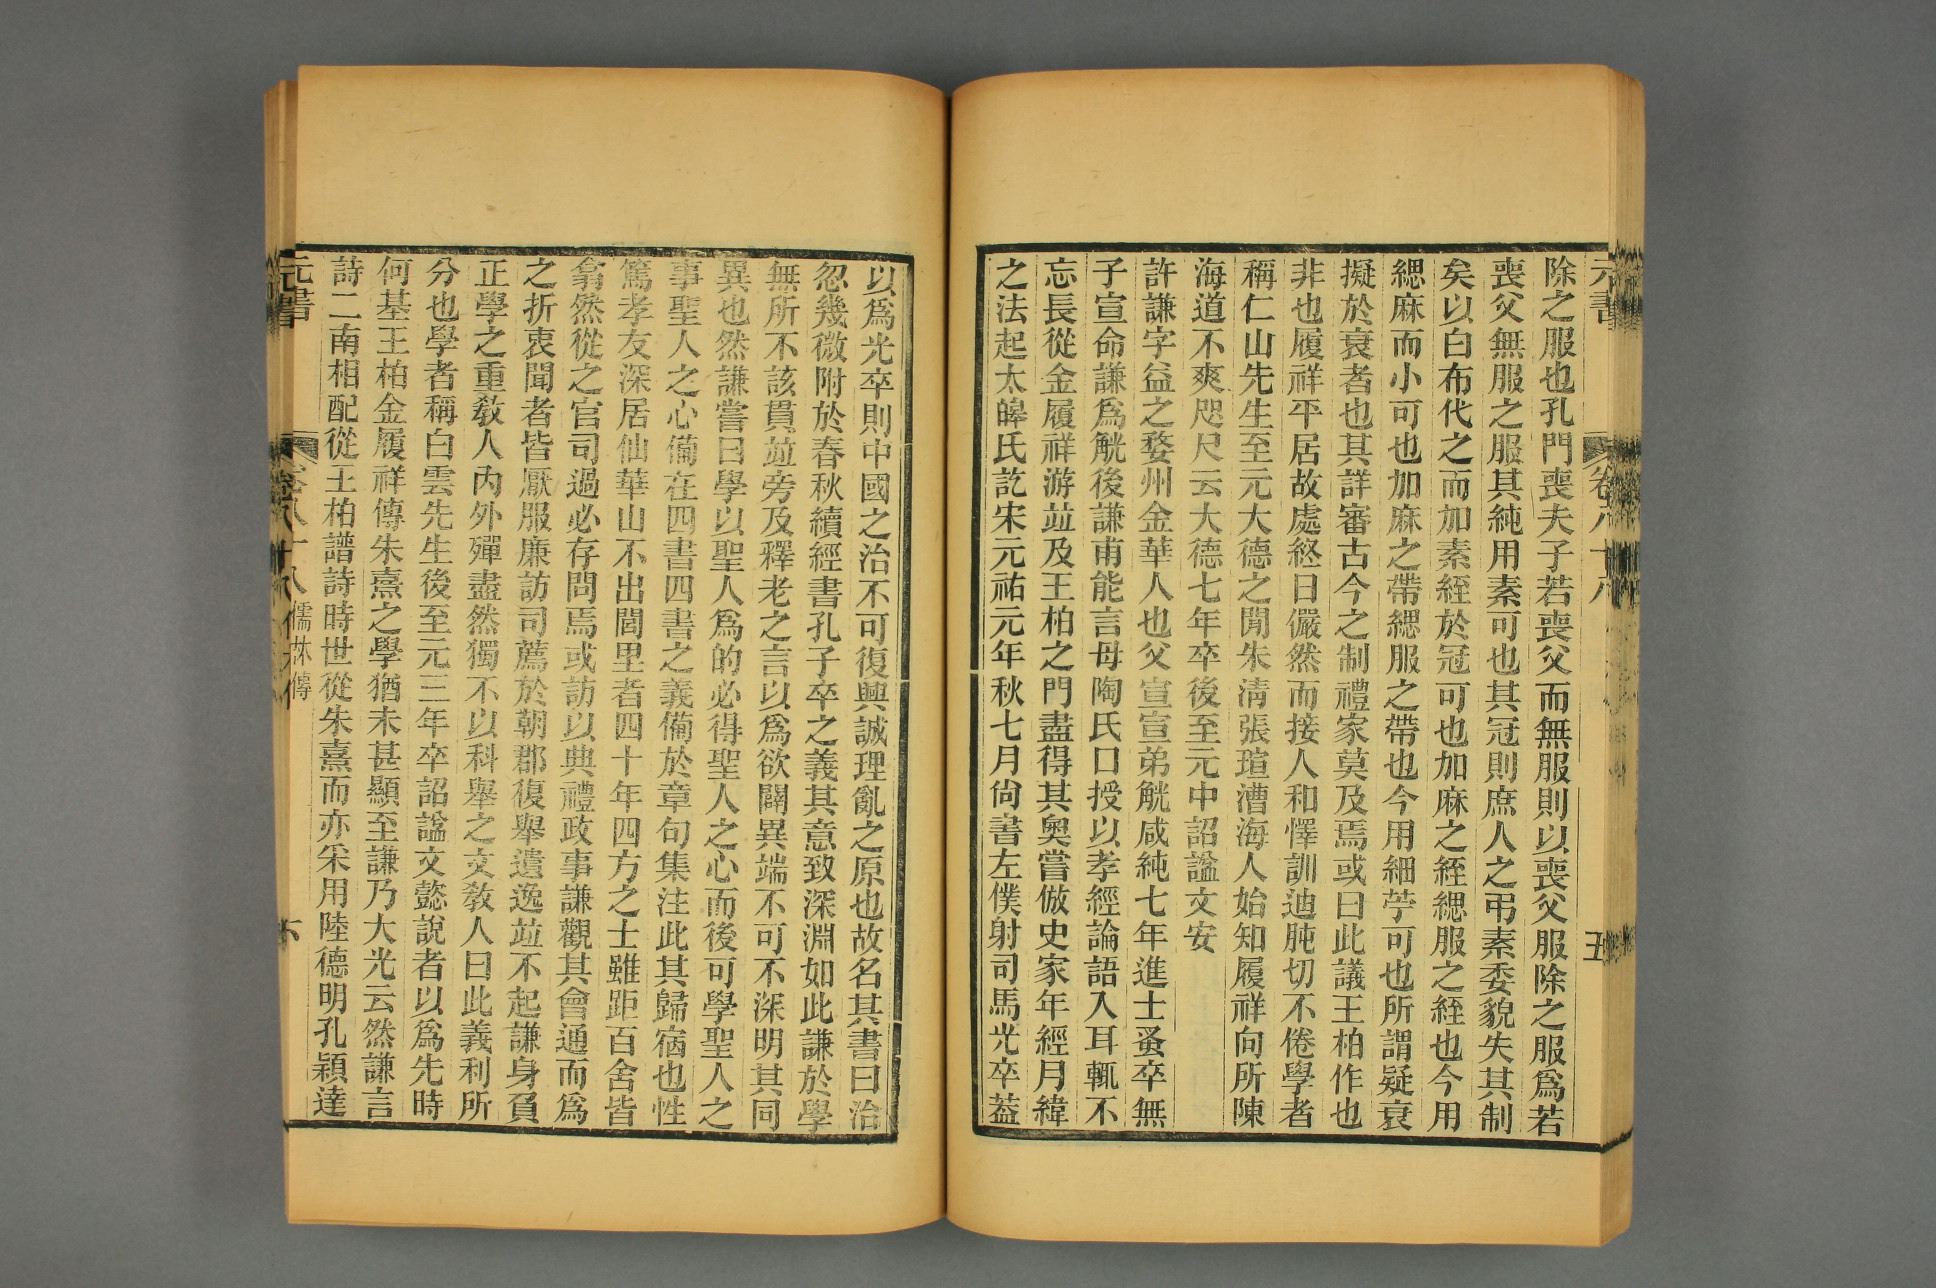 元書
卷八十八
五
除之服也孔門喪夫子若喪父而無服則以喪父服除之服爲若
喪父無服之服其純用素可也其冠則庶人之弔素委貌失其制
矣以白布代之而加素絰於冠可也加麻之絰緦服之絰也今用
緦麻而小可也加麻之帶緦服之帶也今用細苧可也所謂疑衰
擬於衰者也其詳審古今之制禮家莫及焉或曰此議王柏作也
非也履祥平居故處終日儼然而接人和懌訓迪肫切不倦學者
稱仁山先生至元大德之閒朱淸張瑄漕海人始知履祥向所陳
海道不爽咫尺云大德七年卒後至元中詔謚文安
許謙字益之婺州金華人也父宣宣弟觥咸純七年進士蚤卒無
子宣命謙爲觥後謙甫能言母陶氏口授以孝經論語入耳輒不
忘長從金履祥游並及王柏之門盡得其奧嘗倣史家年經月緯
之法起太皞氏訖宋元祐元年秋七月尙書左僕射司馬光卒蓋
以爲光卒則中國之治不可復興誠理亂之原也故名其書曰治
忽幾微附於春秋續經書孔子卒之義其意致深淵如此謙於學
無所不該貫並旁及釋老之言以爲欲闢異端不可不深明其同
異也然謙嘗曰學以聖人爲的必得聖人之心而後可學聖人之
事聖人之心備在四書四書之義備於章句集注此其歸宿也性
篤孝友深居仙華山不出閭里者四十年四方之士雖距百舍皆
翕然從之官司過必存問焉或訪以典禮政事謙觀其會通而爲
之折衷聞者皆厭服廉訪司薦於朝郡復舉遺逸並不起謙身負
正學之重敎人內外殫盡然獨不以科舉之文敎人曰此義利所
分也學者稱白雲先生後至元三年卒詔謚文懿說者以爲先時
何基王柏金履祥傳朱熹之學猶未甚顯至謙乃大光云然謙言
詩二南相配從王柏譜詩時世從朱熹而亦采用陸德明孔穎達
元書
卷八十八
儒林傳
六